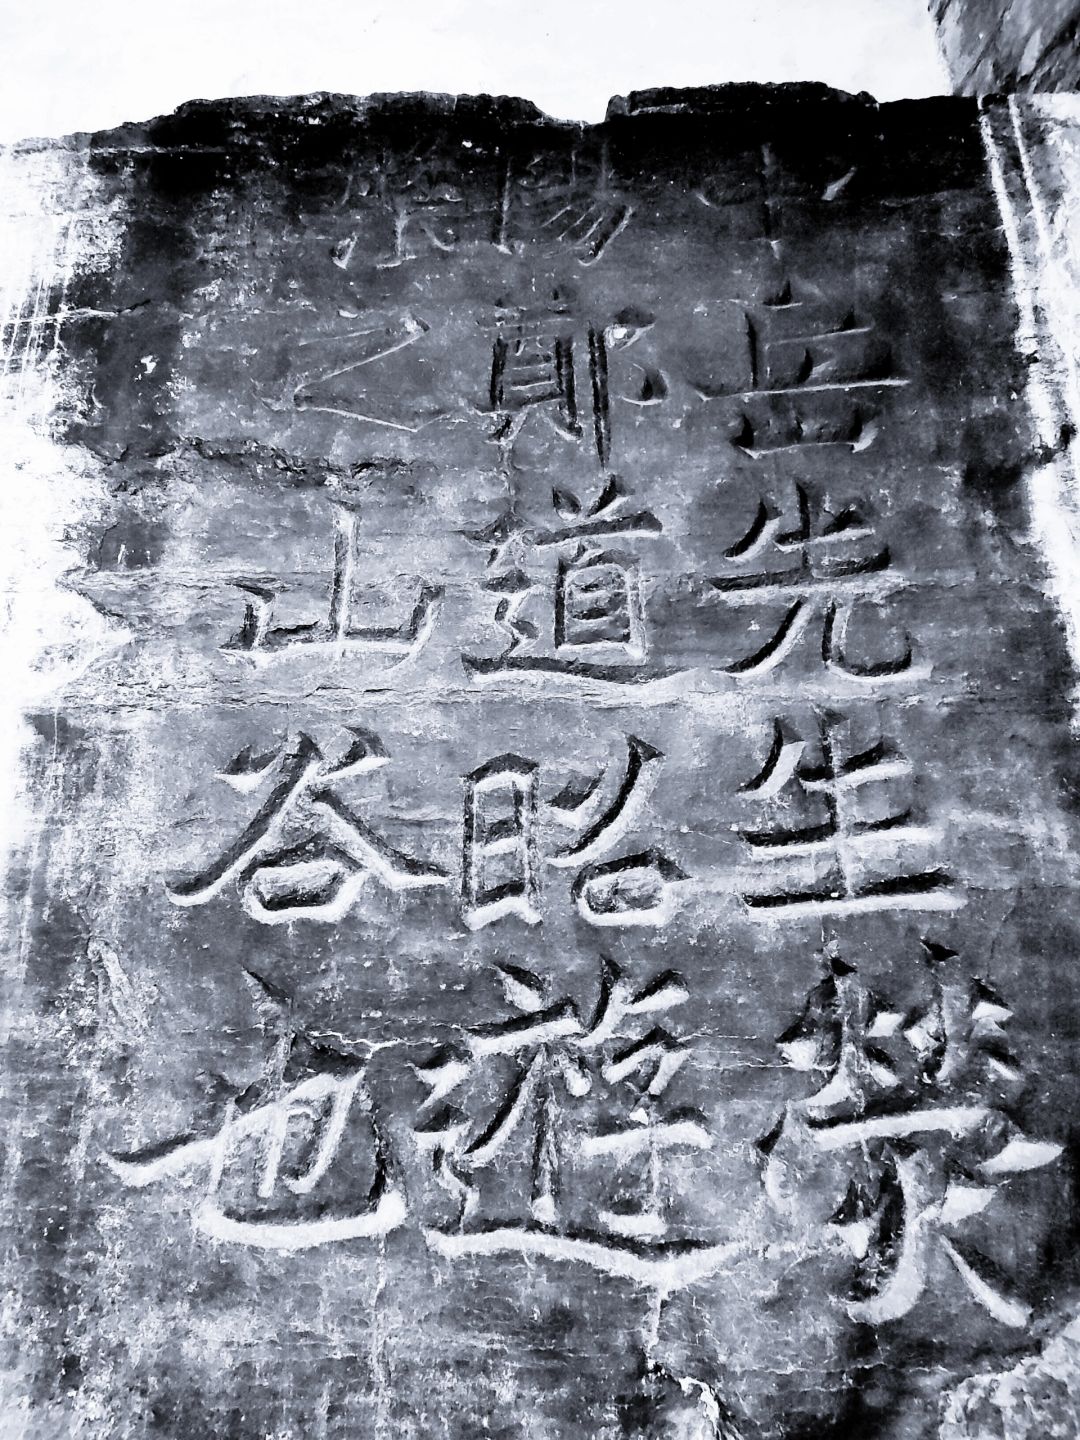 中岳先生滎
陽鄭道昭遊
槃之山谷也